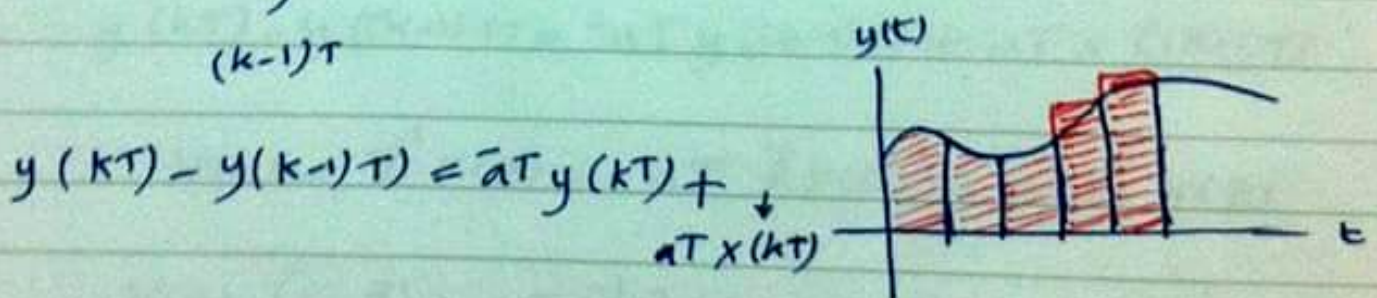 (k-1)T
y(t)
y(kT) - y(k-1)T) = -aT y(kT) +
↓
aT x(kT)
t